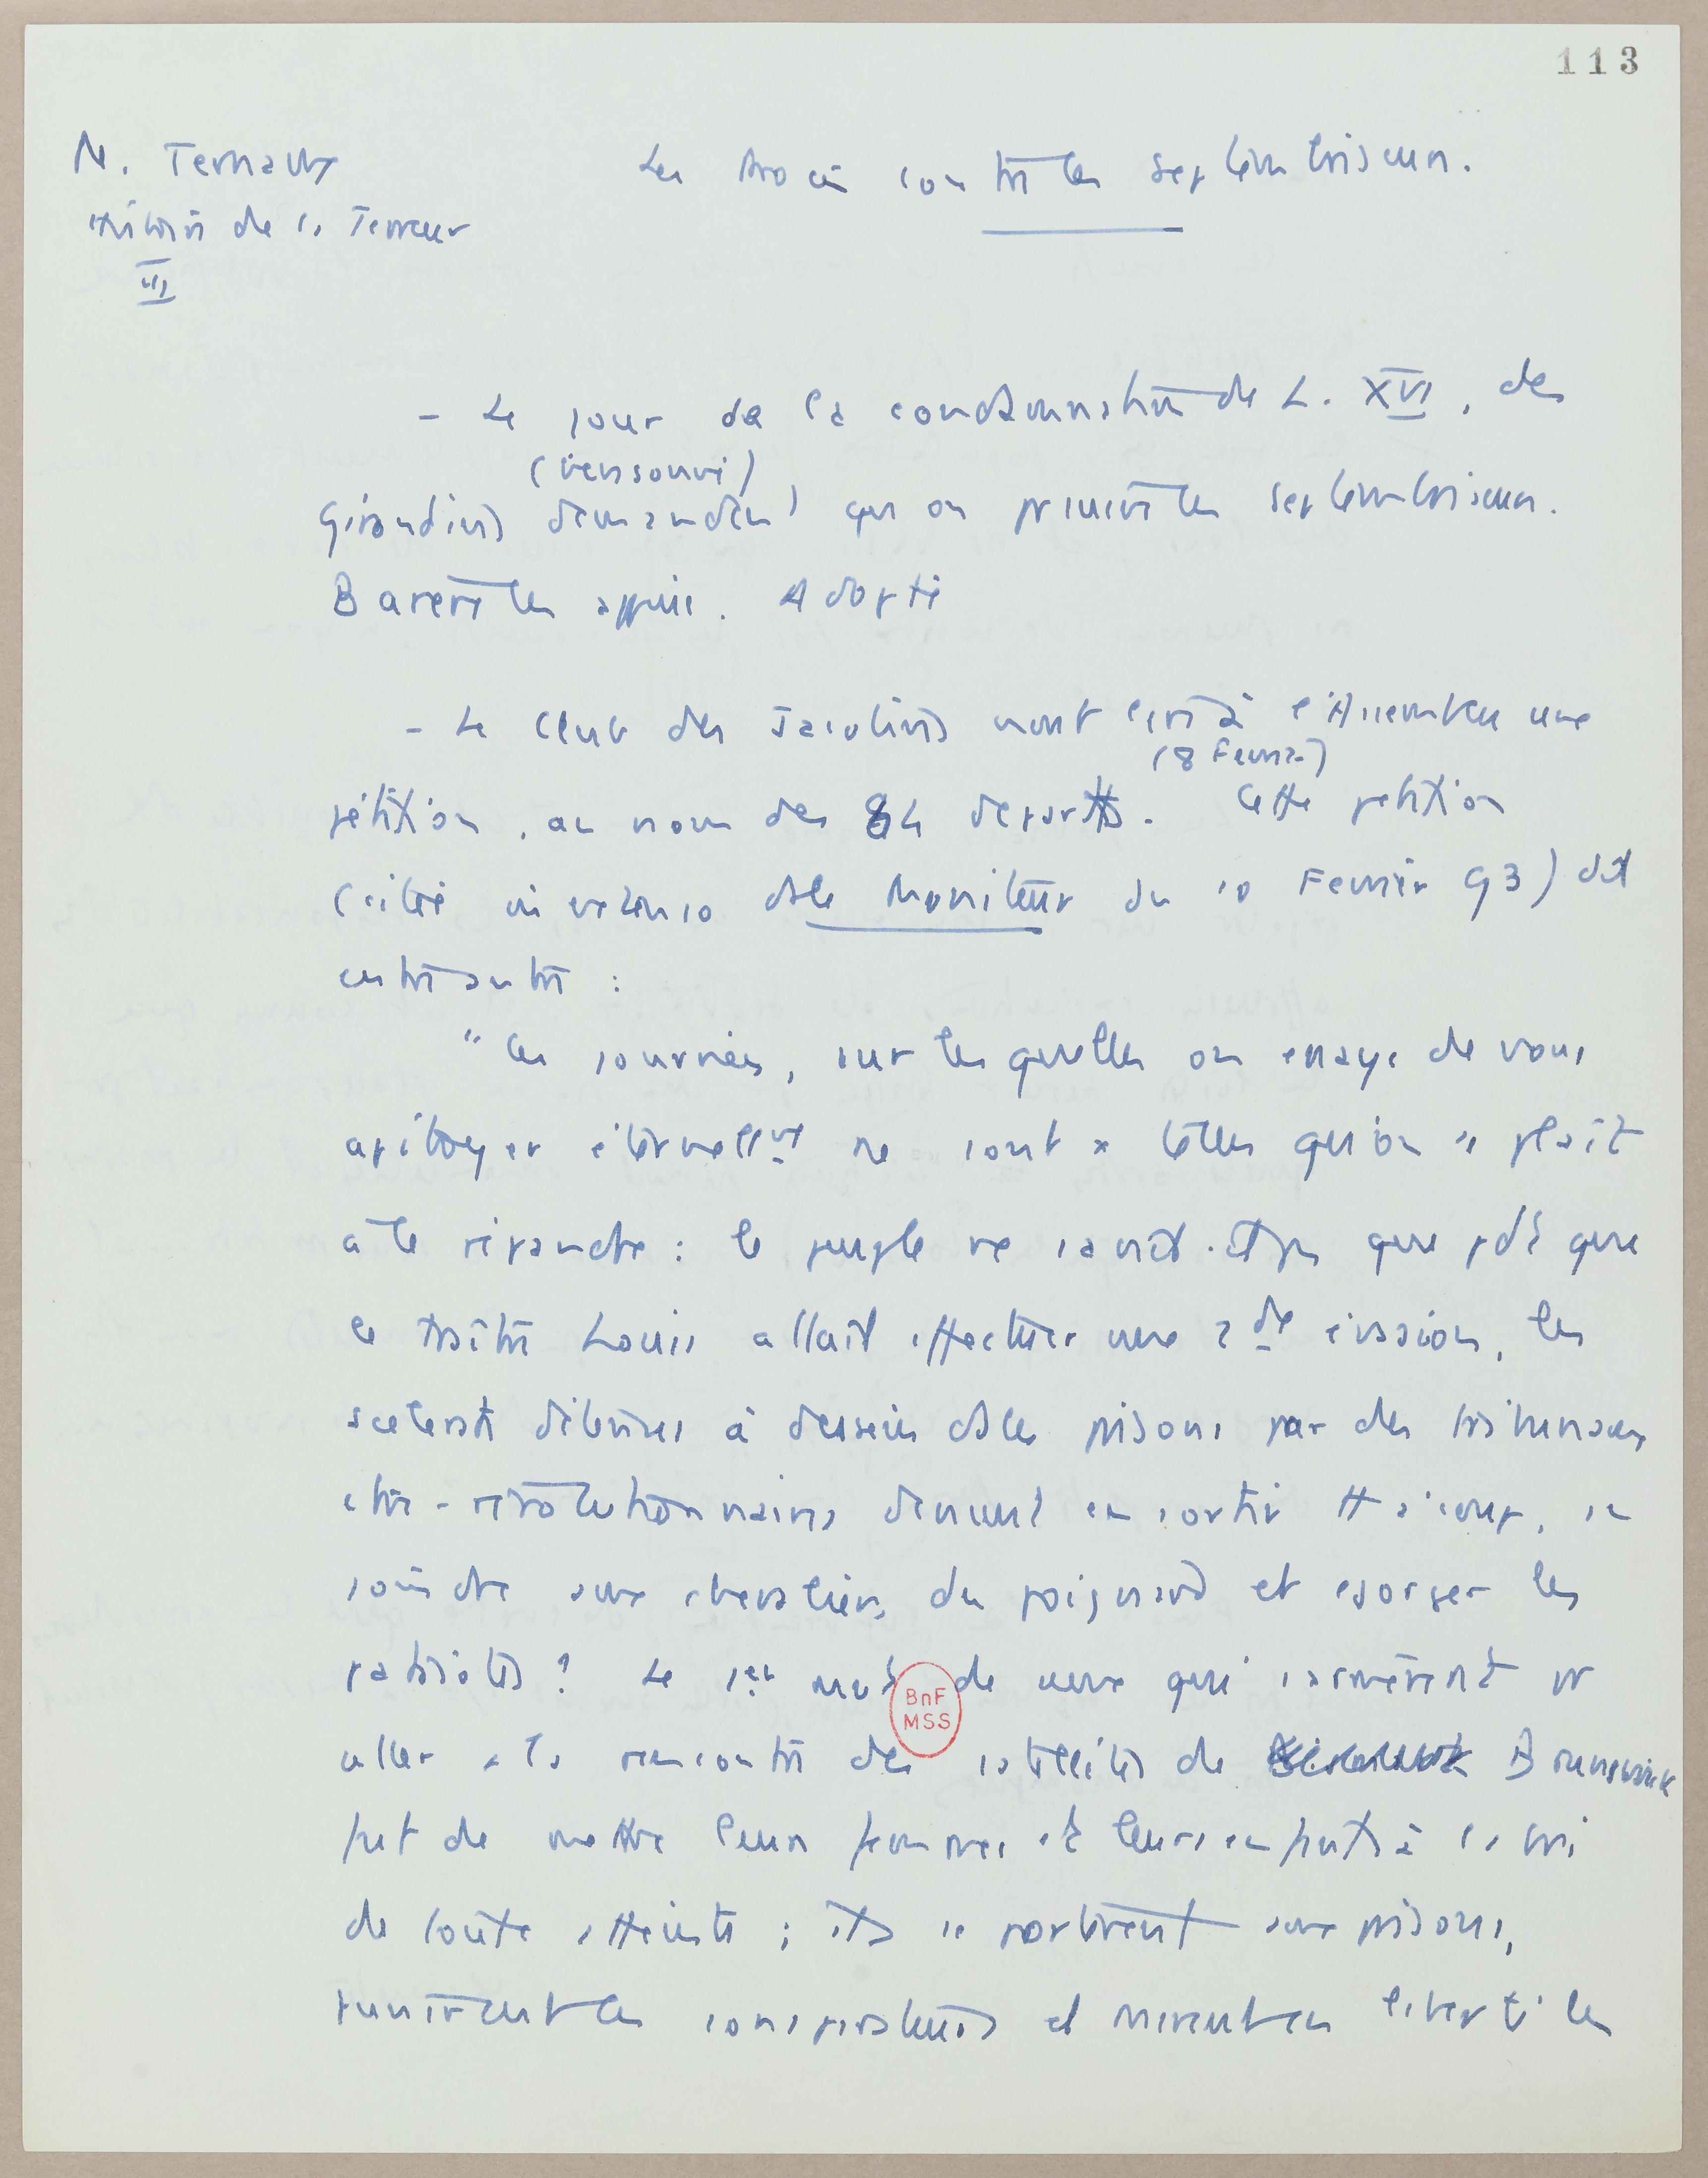 113
M. Ternaux
Histoire de la Terreur
III
Les Procès contre les septembriseurs.
- Le jour de la condamnation de L. XVI, des
(Gensonné)
Girondins demandent qu'on poursuive les septembriseurs.
Barère les appuie. Adopté
- Le Club des Jacobins vont lire à l'Assemblée une
(8 Février)
pétition, au nom des 84 departts. Cette pétition
(citée in extenso ds le Moniteur du 10 Février 93) dit
entre autre :
"Les journées, sur lesquelles on essaye de vous
apitoyer éternellemt ne sont x telles qu'on se plaît
à le répandre : le peuple ne savait-il pas que pdt que
le traître Louis allait effectuer une 2de évasion, les
scélérats détenus à dessein ds les prisons par des tribunaux
ctre-révolutionnaires devaient en sortir tt à coup, se
joindre aux chevaliers du poignard et égorger les
patriotes ? Le 1er mot de ceux qui s'armèrent pr
aller à la rencontre des satellites de Brunswick
fut de mettre leurs femmes et leurs enfants à l'abri
de toute atteinte ; ils se portèrent aux prisons,
punirent les conspirateurs et mirent en liberté les
BnF
MSS